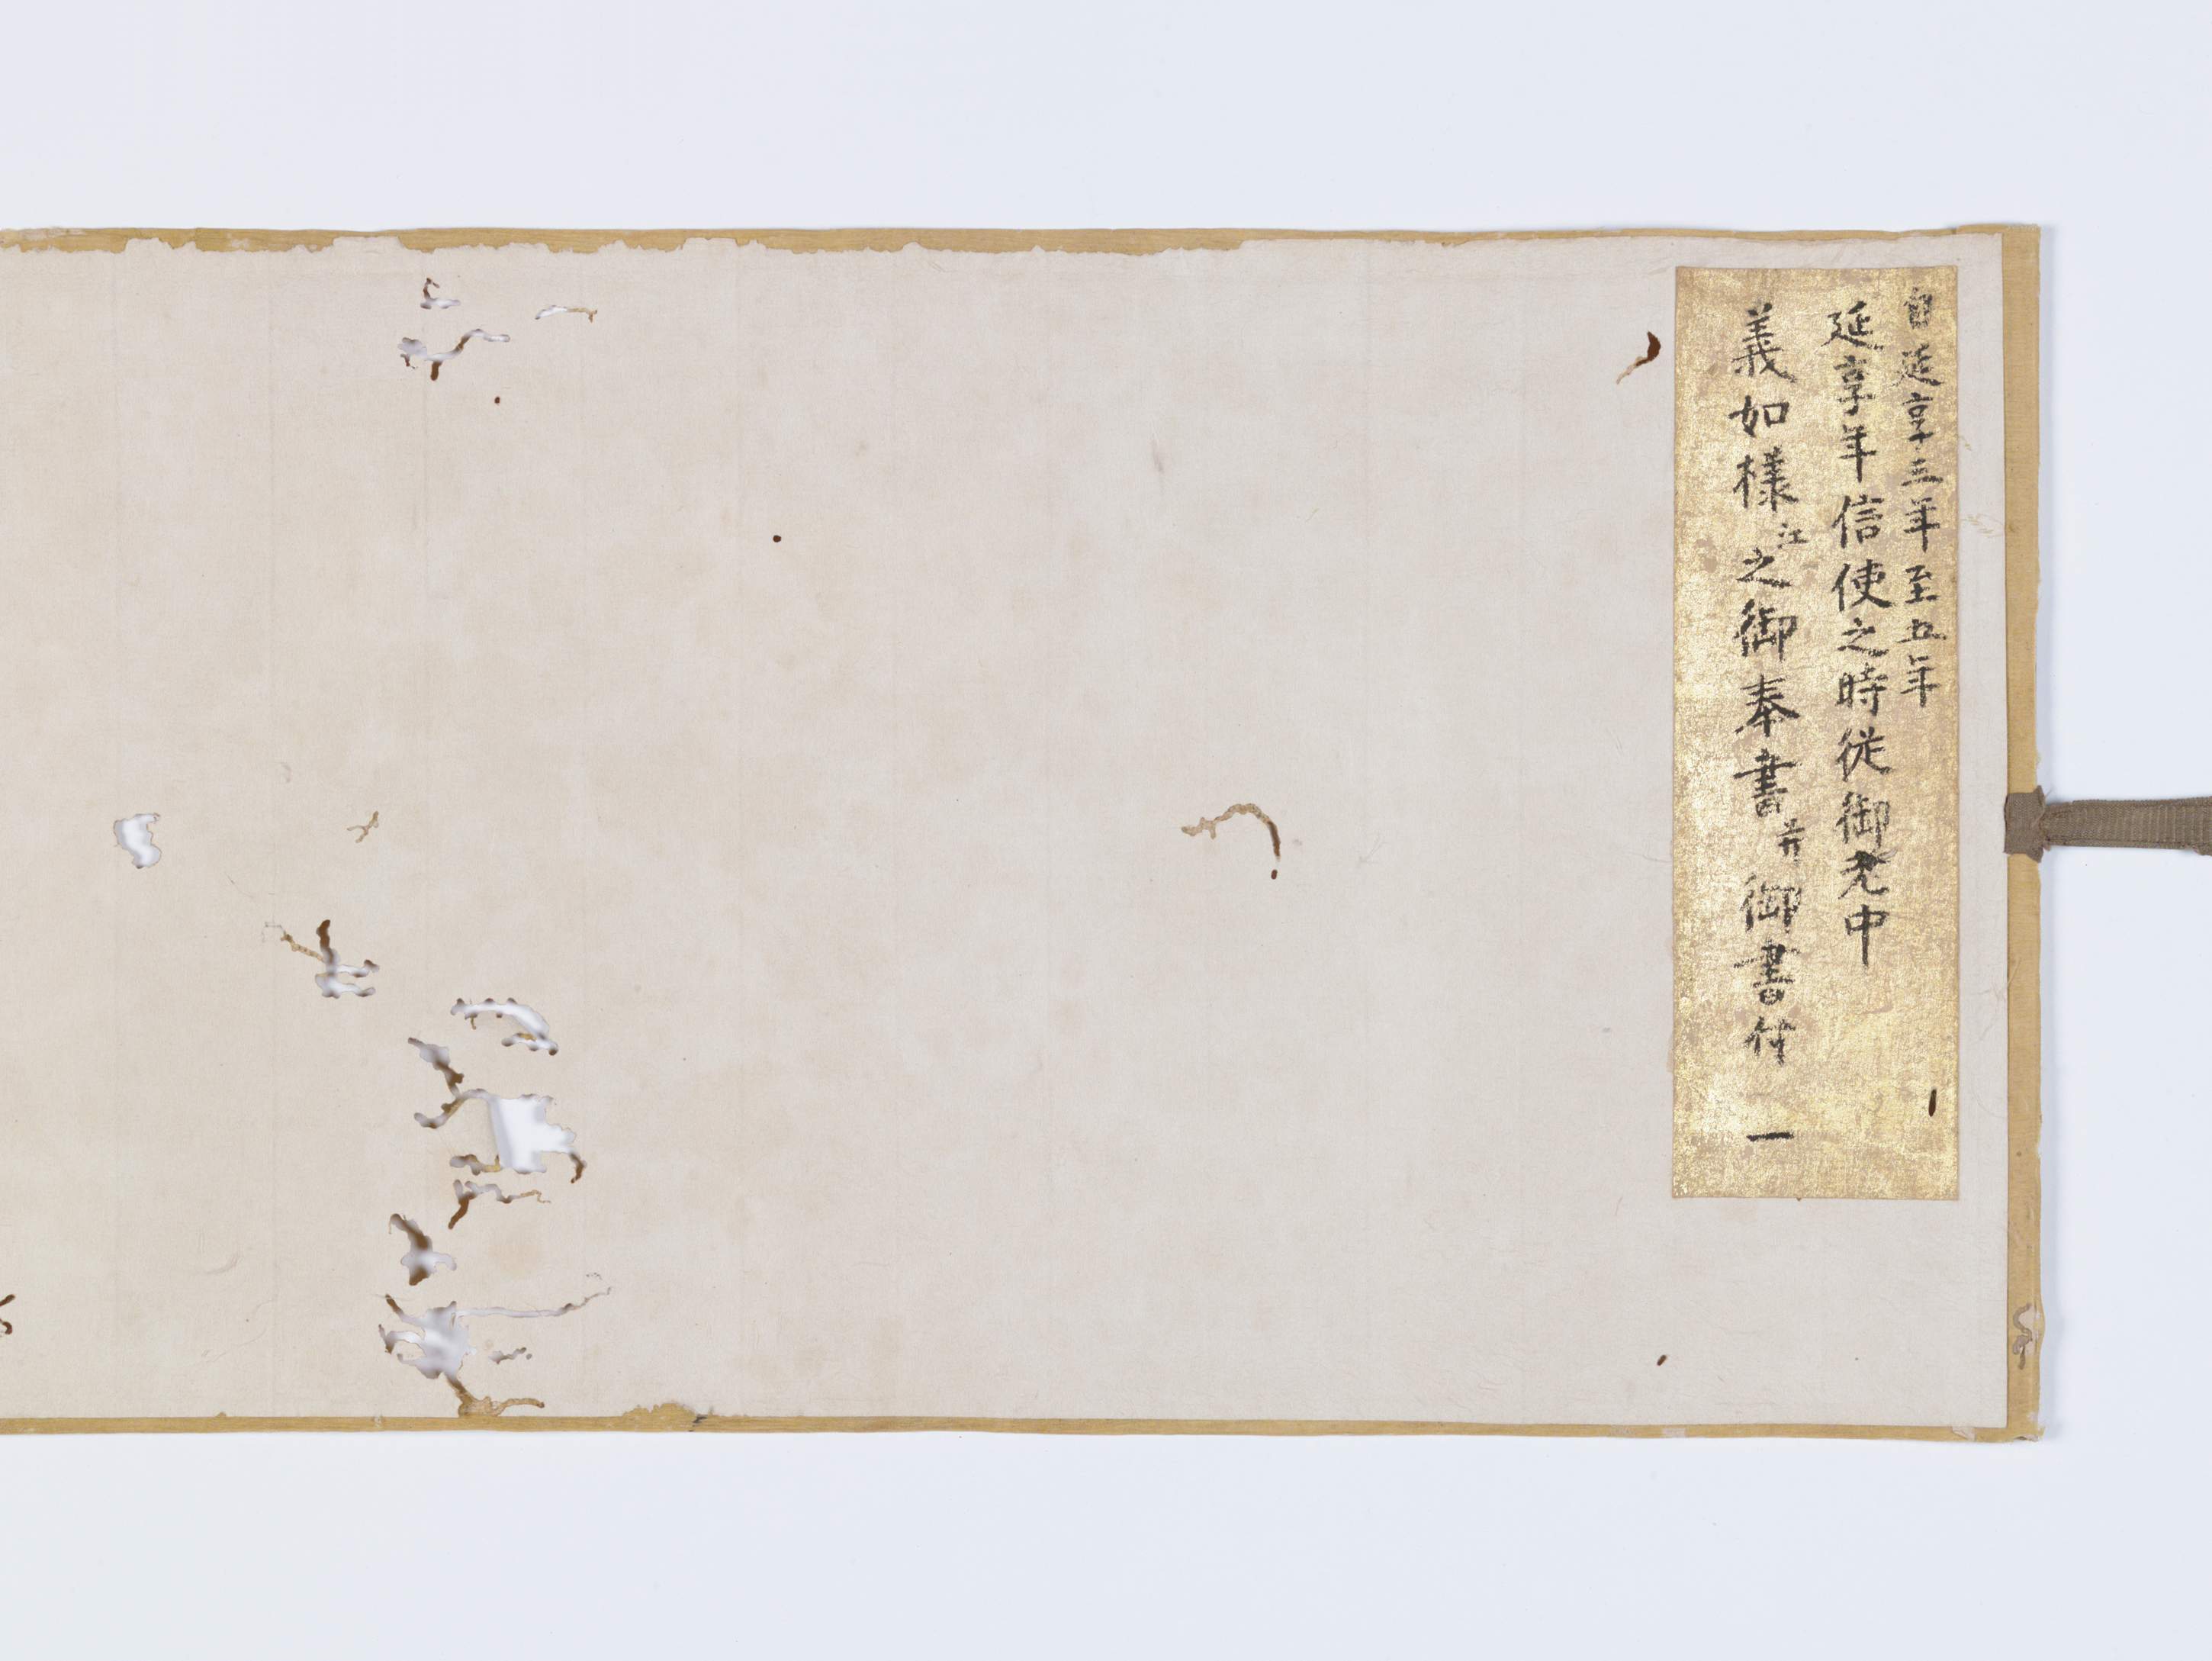 自延享三年至五年
延享年信使之時従御老中
義如様江之御奉書并御書付 一